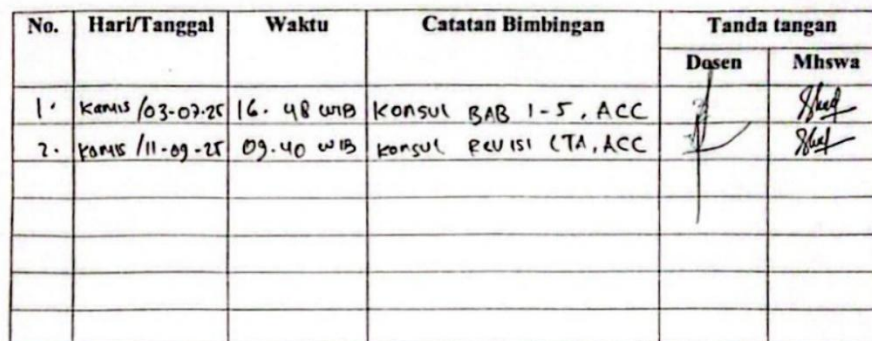 No. Hari/Tanggal Waktu Catatan Bimbingan Tanda tangan
Dosen Mhswa
1. Kamis /03-07-25 16. 48 WIB Konsul BAB 1-5, ACC
2. Kamis /11-09-25 09.40 WIB Konsul Revisi LTA, ACC